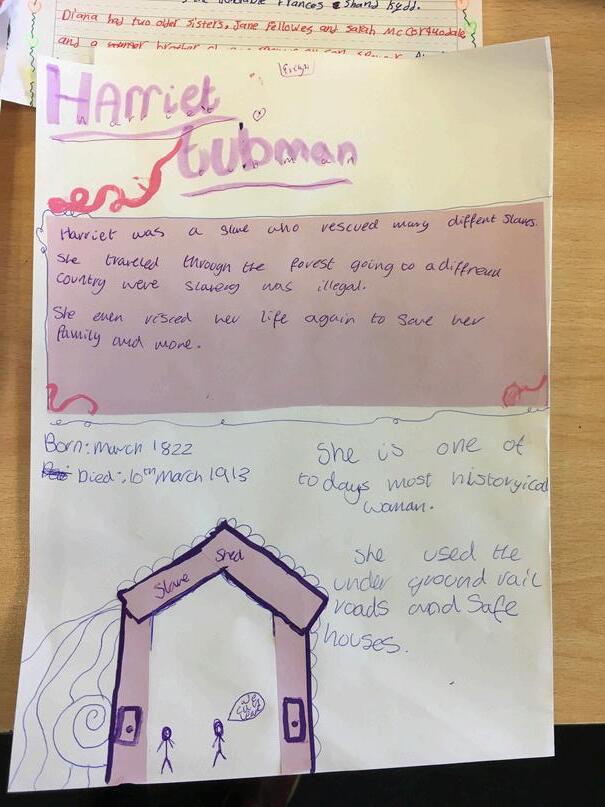 Frances Shand Kydd.
Diana had two older sisters, Jane Fellowes and Sarah McCorquodale
and a
Harriet
Tubman
Harriet was a slave who rescued many diffent slaves.
She traveled through the forest going to a diffreud
country were slavery was illegal.
She even risced her life again to save her
family and more.
Born: March 1822
Died: 10th March 1913
She is one of
todays most historyical
woman.
She used the
under ground rail
roads and Safe
houses.
Slave Shed